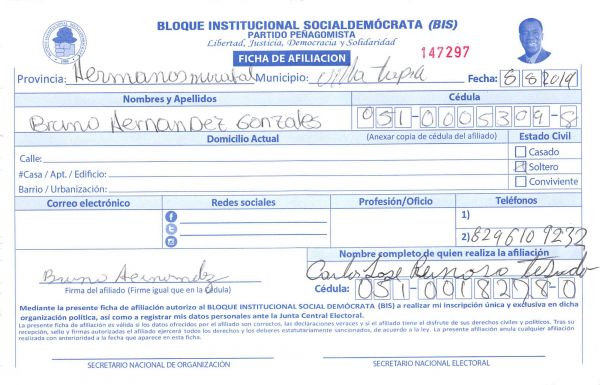 BLOQUE INSTITUCIONAL SOCIALDEMÓCRATA (BIS)
PARTIDO PEÑAGOMISTA
Libertad, Justicia, Democracia y Solidaridad
FICHA DE AFILIACION
147297
Provincia: Hermanos Municipio: Villa tapia Fecha: 8 8 2019
Nombres y Apellidos
Cédula
Bruno Hernandez Gonzales
051-0005309-8
Domicilio Actual
(Anexar copia de cédula del afiliado)
Estado Civil
Calle:
Casado
#Casa / Apt. / Edificio:
Soltero
Barrio / Urbanización:
Conviviente
Correo electrónico
Redes sociales
Profesión/Oficio
Teléfonos
1)
2) 829610 9232
Nombre completo de quien realiza la afiliación
Bruno Hernandez
Carlos Jose
Firma del afiliado (Firme igual que en la Cédula)
Cédula: 051-0018278-0
Mediante la presente ficha de afiliación autorizo al BLOQUE INSTITUCIONAL SOCIAL DEMÓCRATA (BIS) a realizar mi inscripción única y exclusiva en dicha
organización política, así como a registrar mis datos personales ante la Junta Central Electoral.
La presente ficha de afiliación es válida si los datos ofrecidos por el afiliado son correctos, las declaraciones veraces y si el afiliado tiene el disfrute de sus derechos civiles y políticos. Tras su
recepción, sello y firmas autorizadas el afiliado ejercerá todos los derechos y los deberes estatutariamente sancionados, de acuerdo a la ley. La presente afiliación anula cualquier afiliación
realizada con anterioridad a la fecha que aparece en esta ficha.
SECRETARIO NACIONAL DE ORGANIZACIÓN
SECRETARIO NACIONAL ELECTORAL